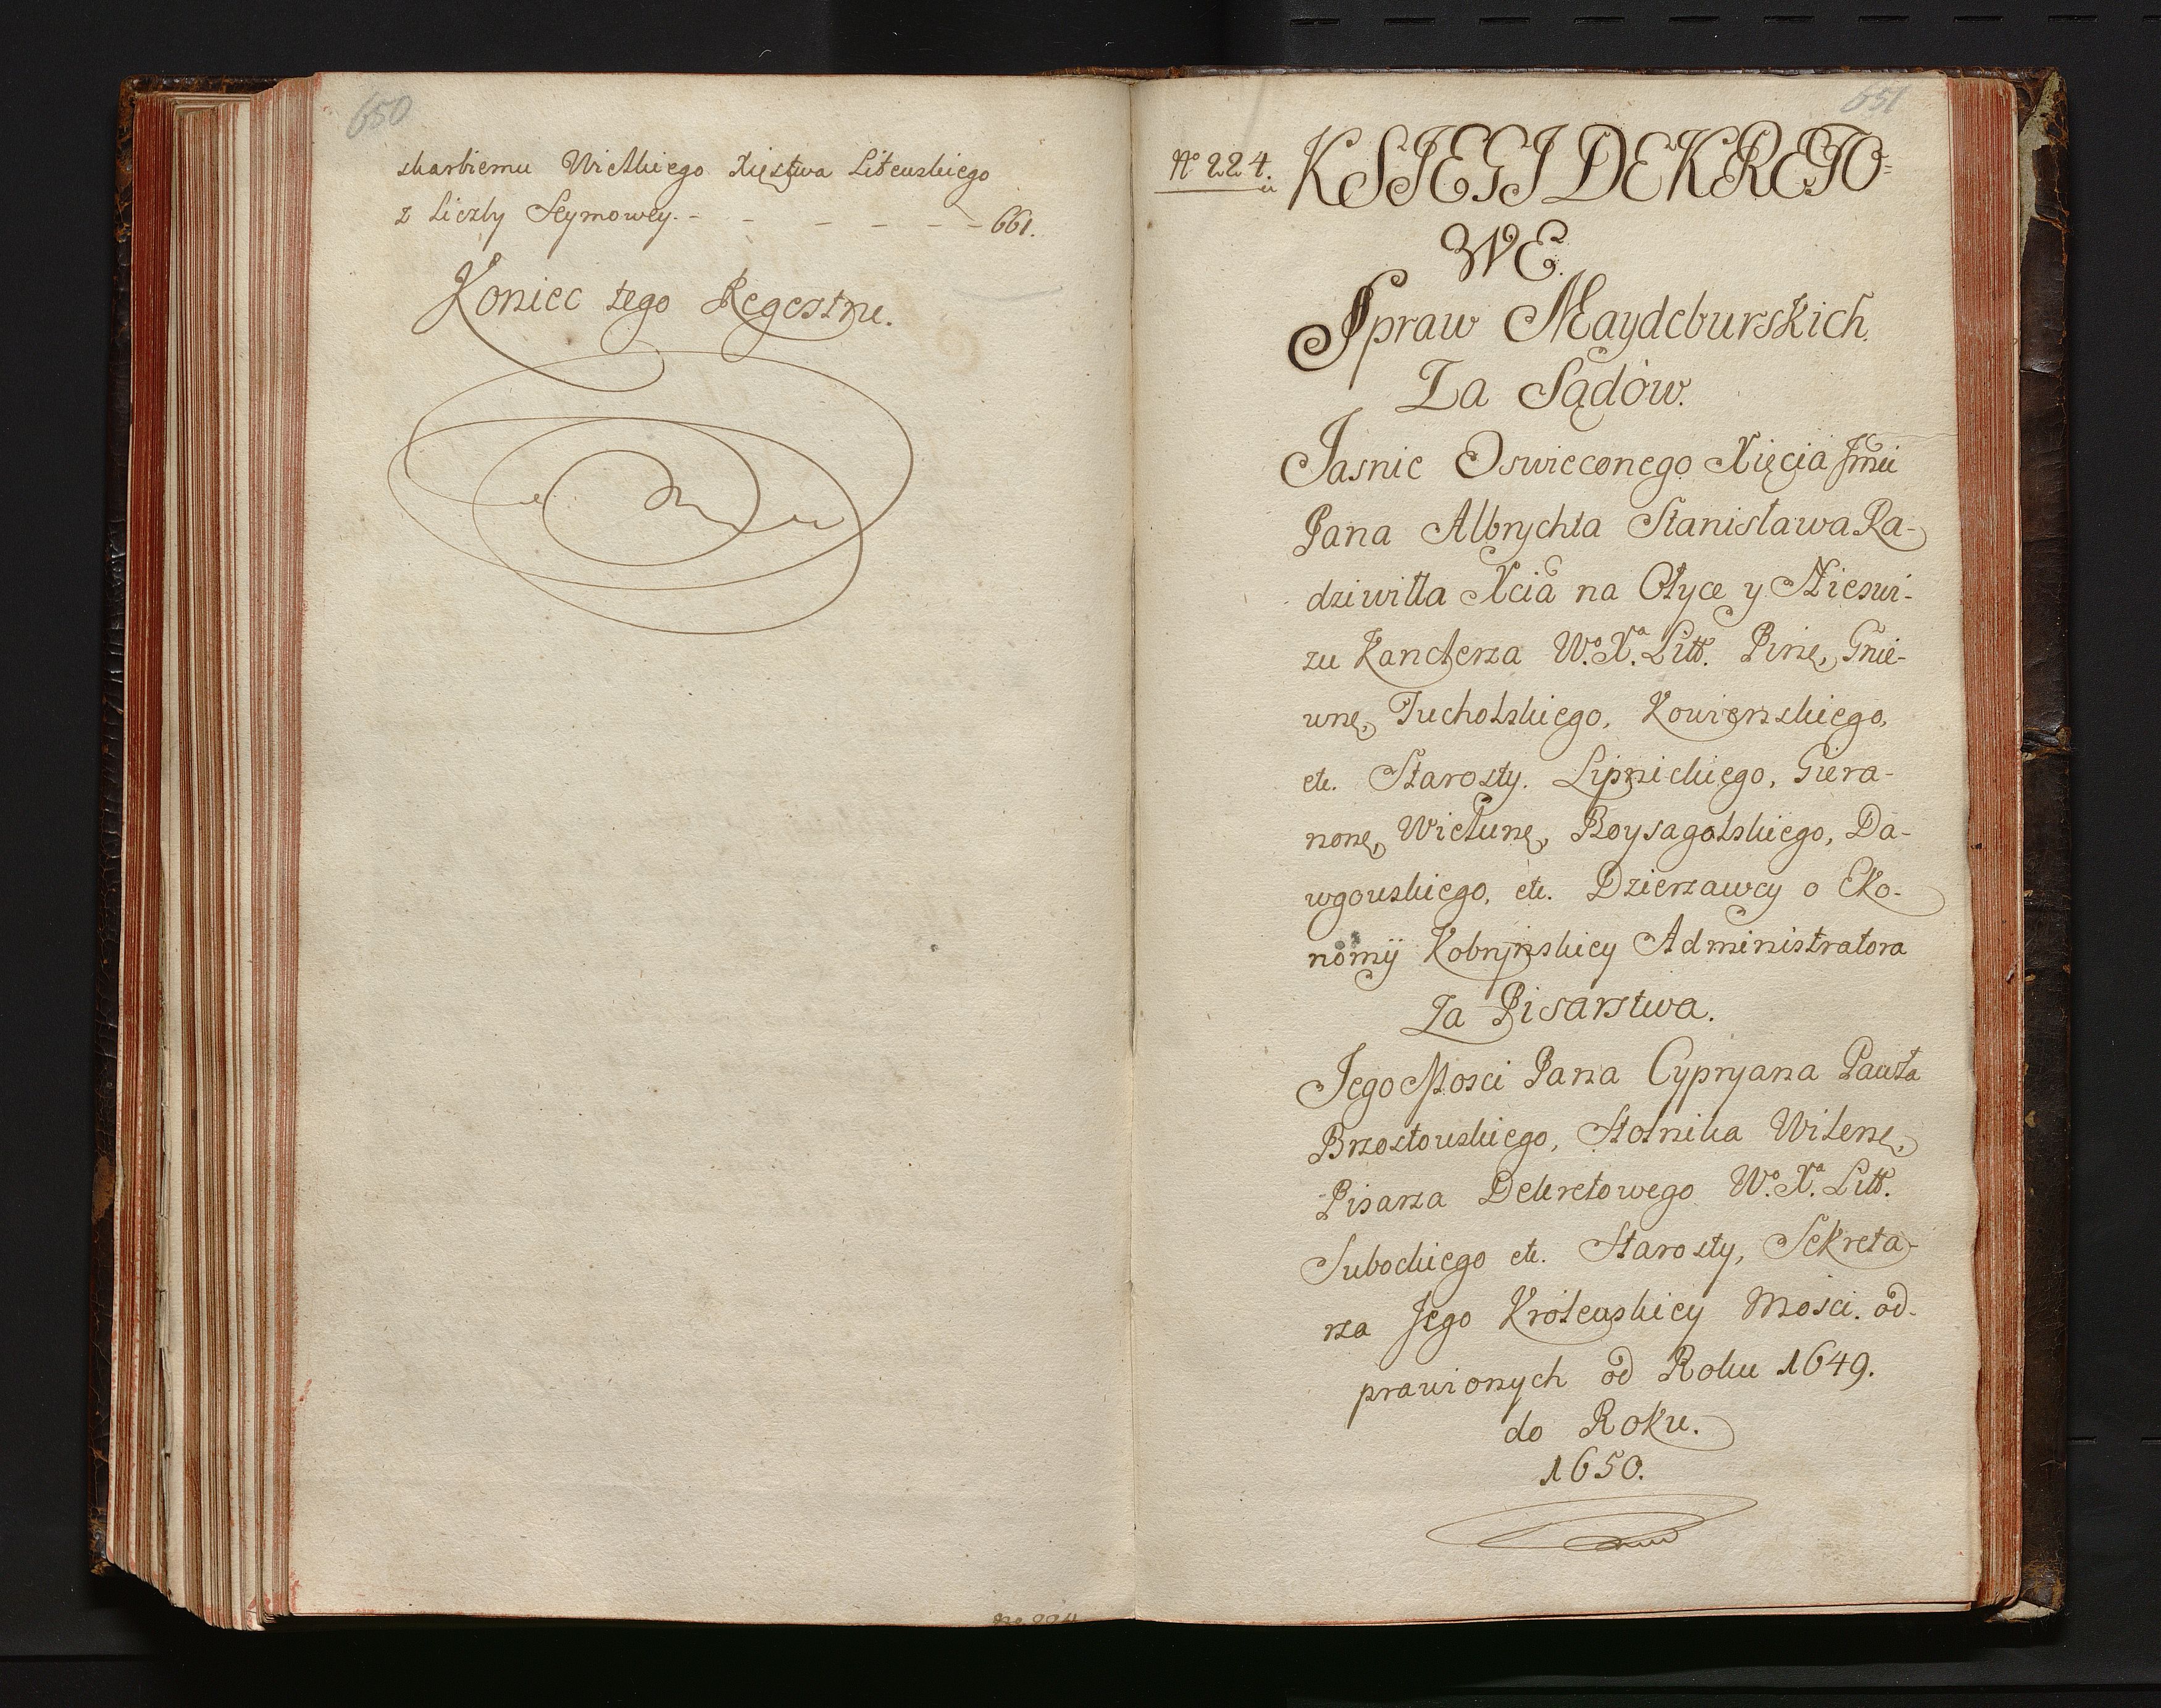 650
skarbiemu Wielkiego Xięstwa Litewskiego
z Liczby Seymowey. - - - - - - 661.
Koniec tego Regestru.
651
No 224.
KSIEGI DEKRETO=
WE.
Spraw Maydeburskich.
Za Sądów.
Jasnie Oswieconego Xięcia Jmći
Pana Albrychta Stanisława Ra-
dziwiłła Xcia na Ołyce y Nieswi-
zu Kanclerza W.o X.a Litt. Pinz, Gnie-
wnz, Tucholskiego, Kowienskiego,
etc. Starosty. Lipnickiego, Giera-
nonz, Wielunz, Roysagolskiego, Da-
wgowskiego, etc. Dzierzawcy o Eko-
nomij Kobrynskiey Administratora
Za Pisarstwa.
Jego Mosci Pana Cypryana Pawła
Brzostowskiego, Stolnika Wilenz,
Pisarza Dekretowego W.o X.a Litt.
Subockiego etc. Starosty, Sekreta-
rza Jego Królewskiey Mosci. od-
prawionych od Roku 1649.
do Roku.
1650.
No 224